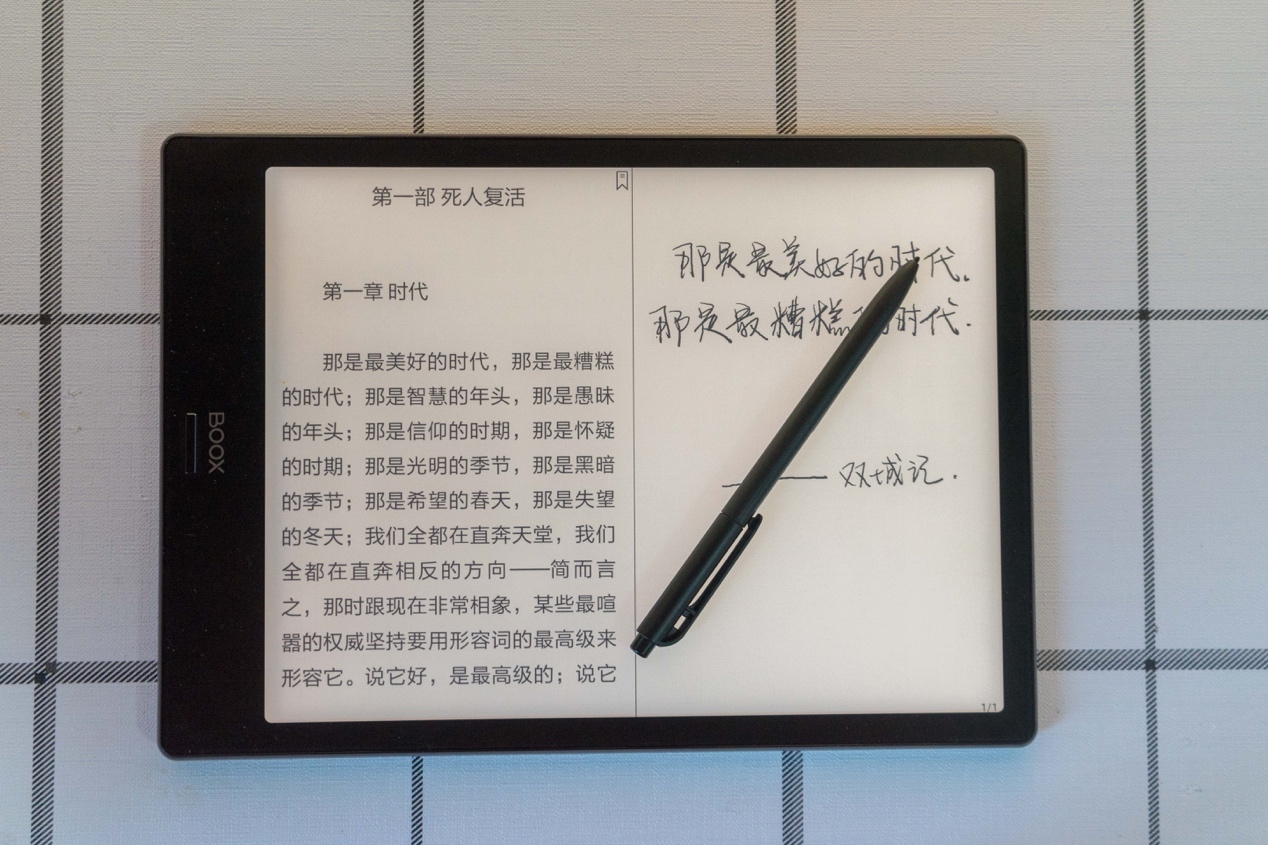 BOOX
第一部 死人复活
第一章 时代
那是最美好的时代，那是最糟糕
的时代；那是智慧的年头，那是愚昧
的年头；那是信仰的时期，那是怀疑
的时期；那是光明的季节，那是黑暗
的季节；那是希望的春天，那是失望
的冬天；我们全都在直奔天堂，我们
全都在直奔相反的方向——简而言
之，那时跟现在非常相象，某些最喧
嚣的权威坚持要用形容词的最高级来
形容它。说它好，是最高级的；说它
那是最美好的时代.
那是最糟糕时代.
——双城记.
1/1